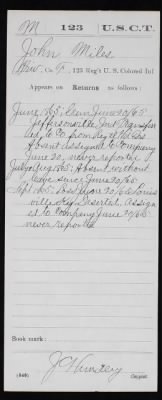 M 123 U.S.C.T.
John Miles
Priv., Co. F, 123 Reg't U. S. Colored Inf.
Appears on Returns as follows:
June /65; Gain June 20/65
Jeffersonville Ind Transfer
ed to Co from
Absent assigned to Company
June 20, never reported
July & Aug /65; Absent without
leave since June 20/65
Sept /65; Loss June 20/65 Louis
ville Ky Deserted. Assign
ed to Company June 20/65
never reported
Book mark:
(546)
Copyist.